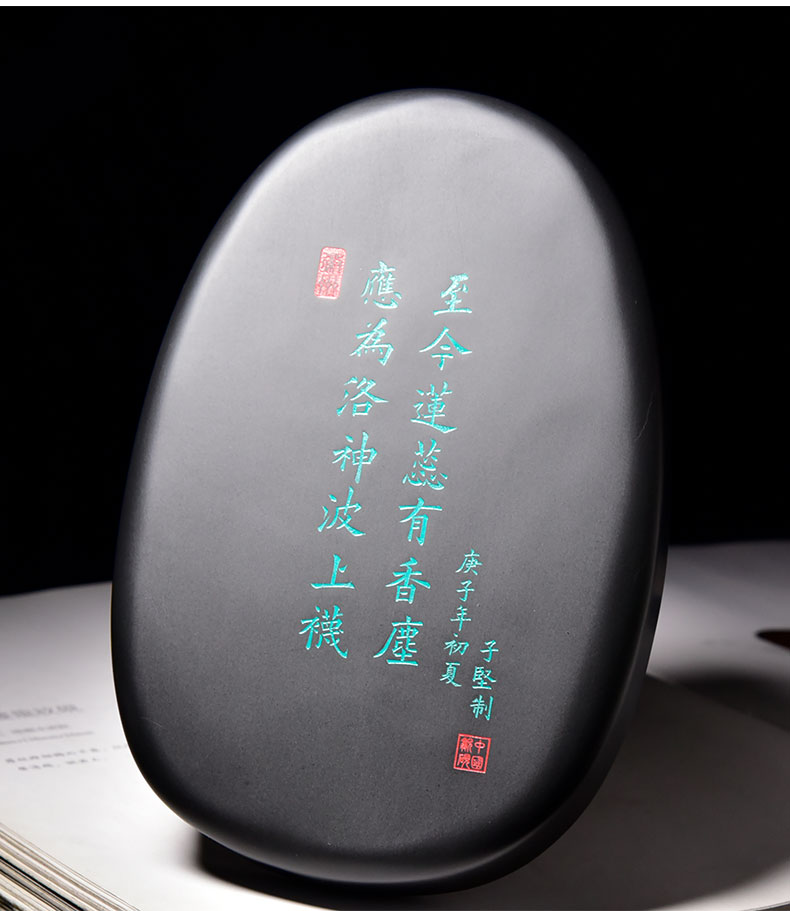 應為洛神波上襪
至今蓮蕊有香塵
庚子年初夏
子堅制
中國歙硯